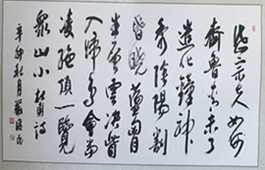 岱宗夫如何
齊魯青未了
造化鍾神
秀陰陽割
昏曉盪胸
生層雲決眥
入歸鳥會當
凌絕頂一覽
眾山小杜甫詩
辛卯秋月